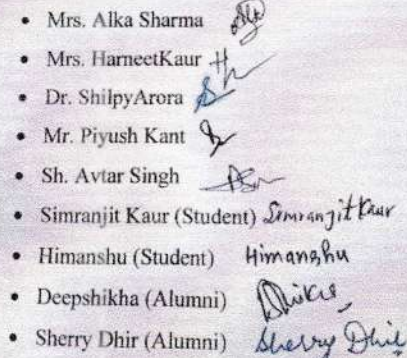 • Mrs. Alka Sharma
• Mrs. HarneetKaur
• Dr. ShilpyArora
• Mr. Piyush Kant
• Sh. Avtar Singh
• Simranjit Kaur (Student) Simranjit Kaur
• Himanshu (Student) Himanshu
• Deepshikha (Alumni)
• Sherry Dhir (Alumni) Sherry Dhir